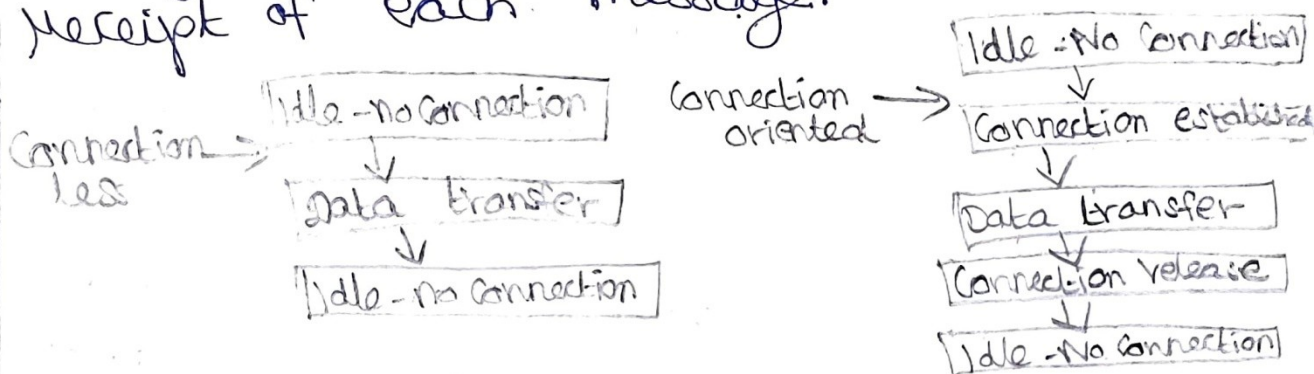 receipt of each message.
Connection
less
Idle - no connection
Data transfer
Idle - no connection
Connection
oriented
Idle - No Connection
Connection established
Data transfer
Connection release
Idle - No Connection